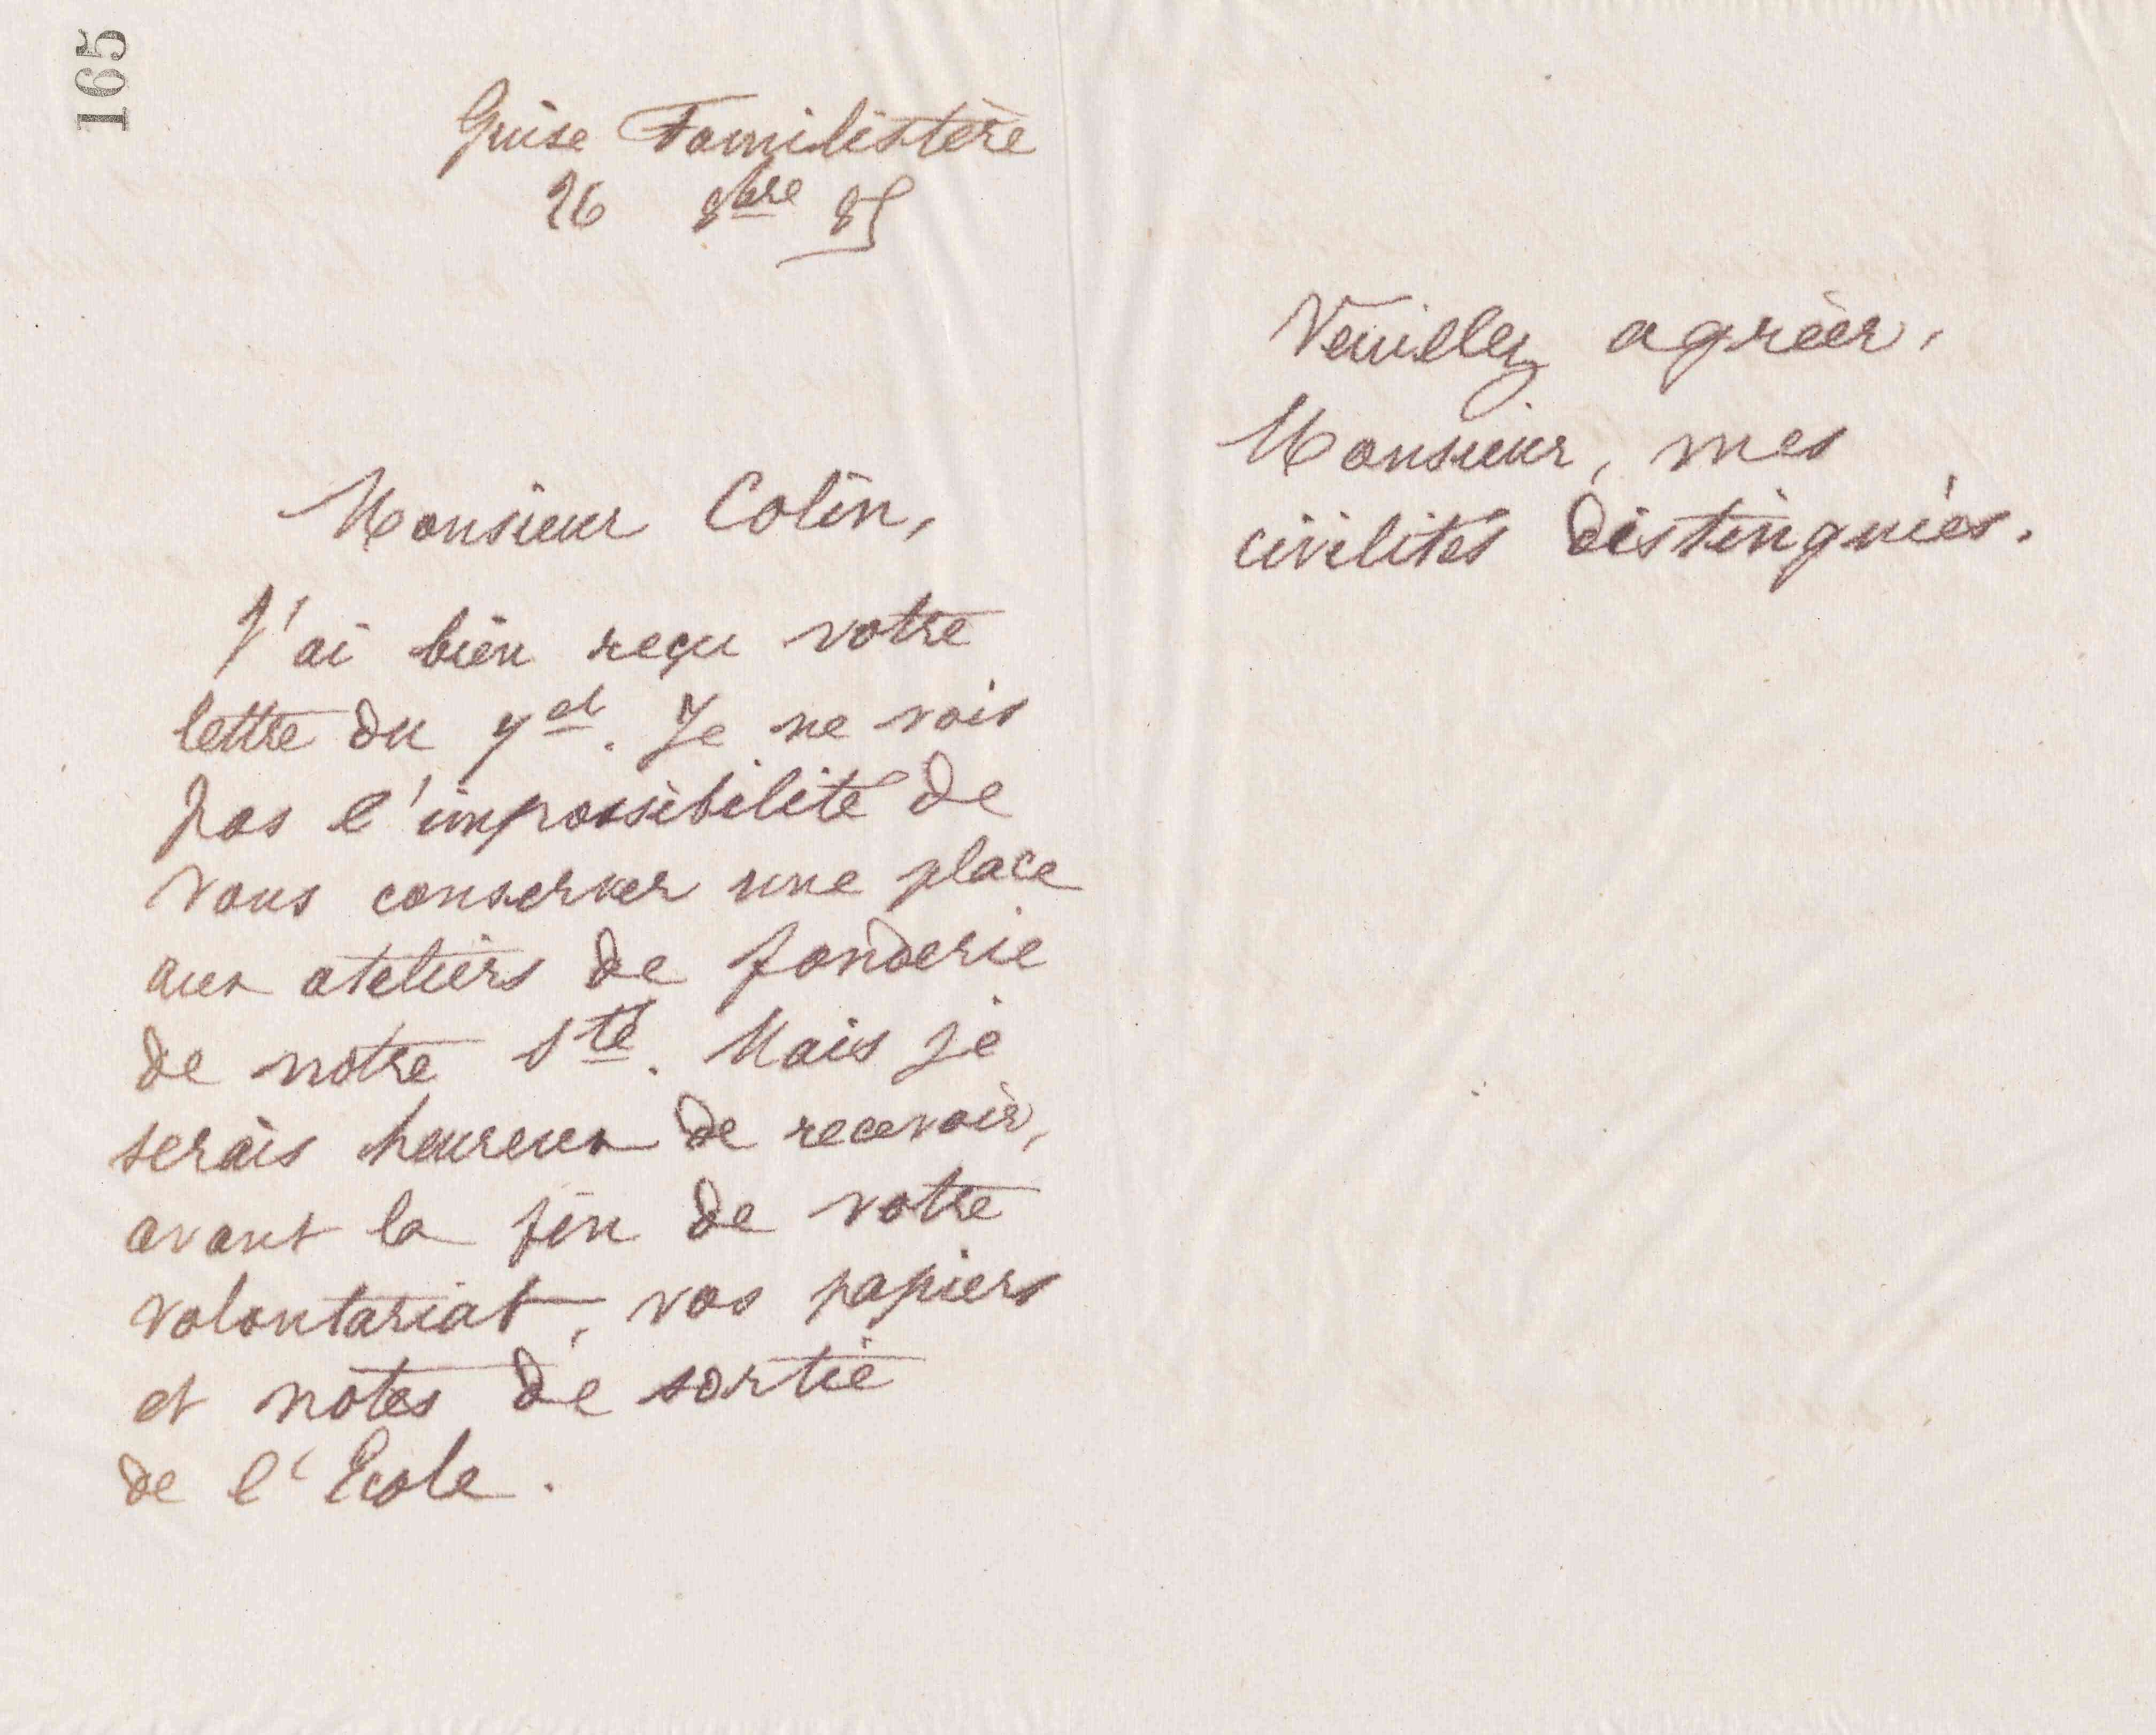 165
Guise Familistère
26 8bre 85
Monsieur Colin,
J'ai bien reçu votre
lettre du 9 ct. Je ne vois
pas l'impossibilité de
vous conserver une place
aux ateliers de fonderie
de notre Sté. Mais je
serais heureux de recevoir,
avant la fin de votre
volontariat, vos papiers
et notes de sortie
de l'Ecole.
Veuillez agréer,
Monsieur, mes
civilités distinguées.